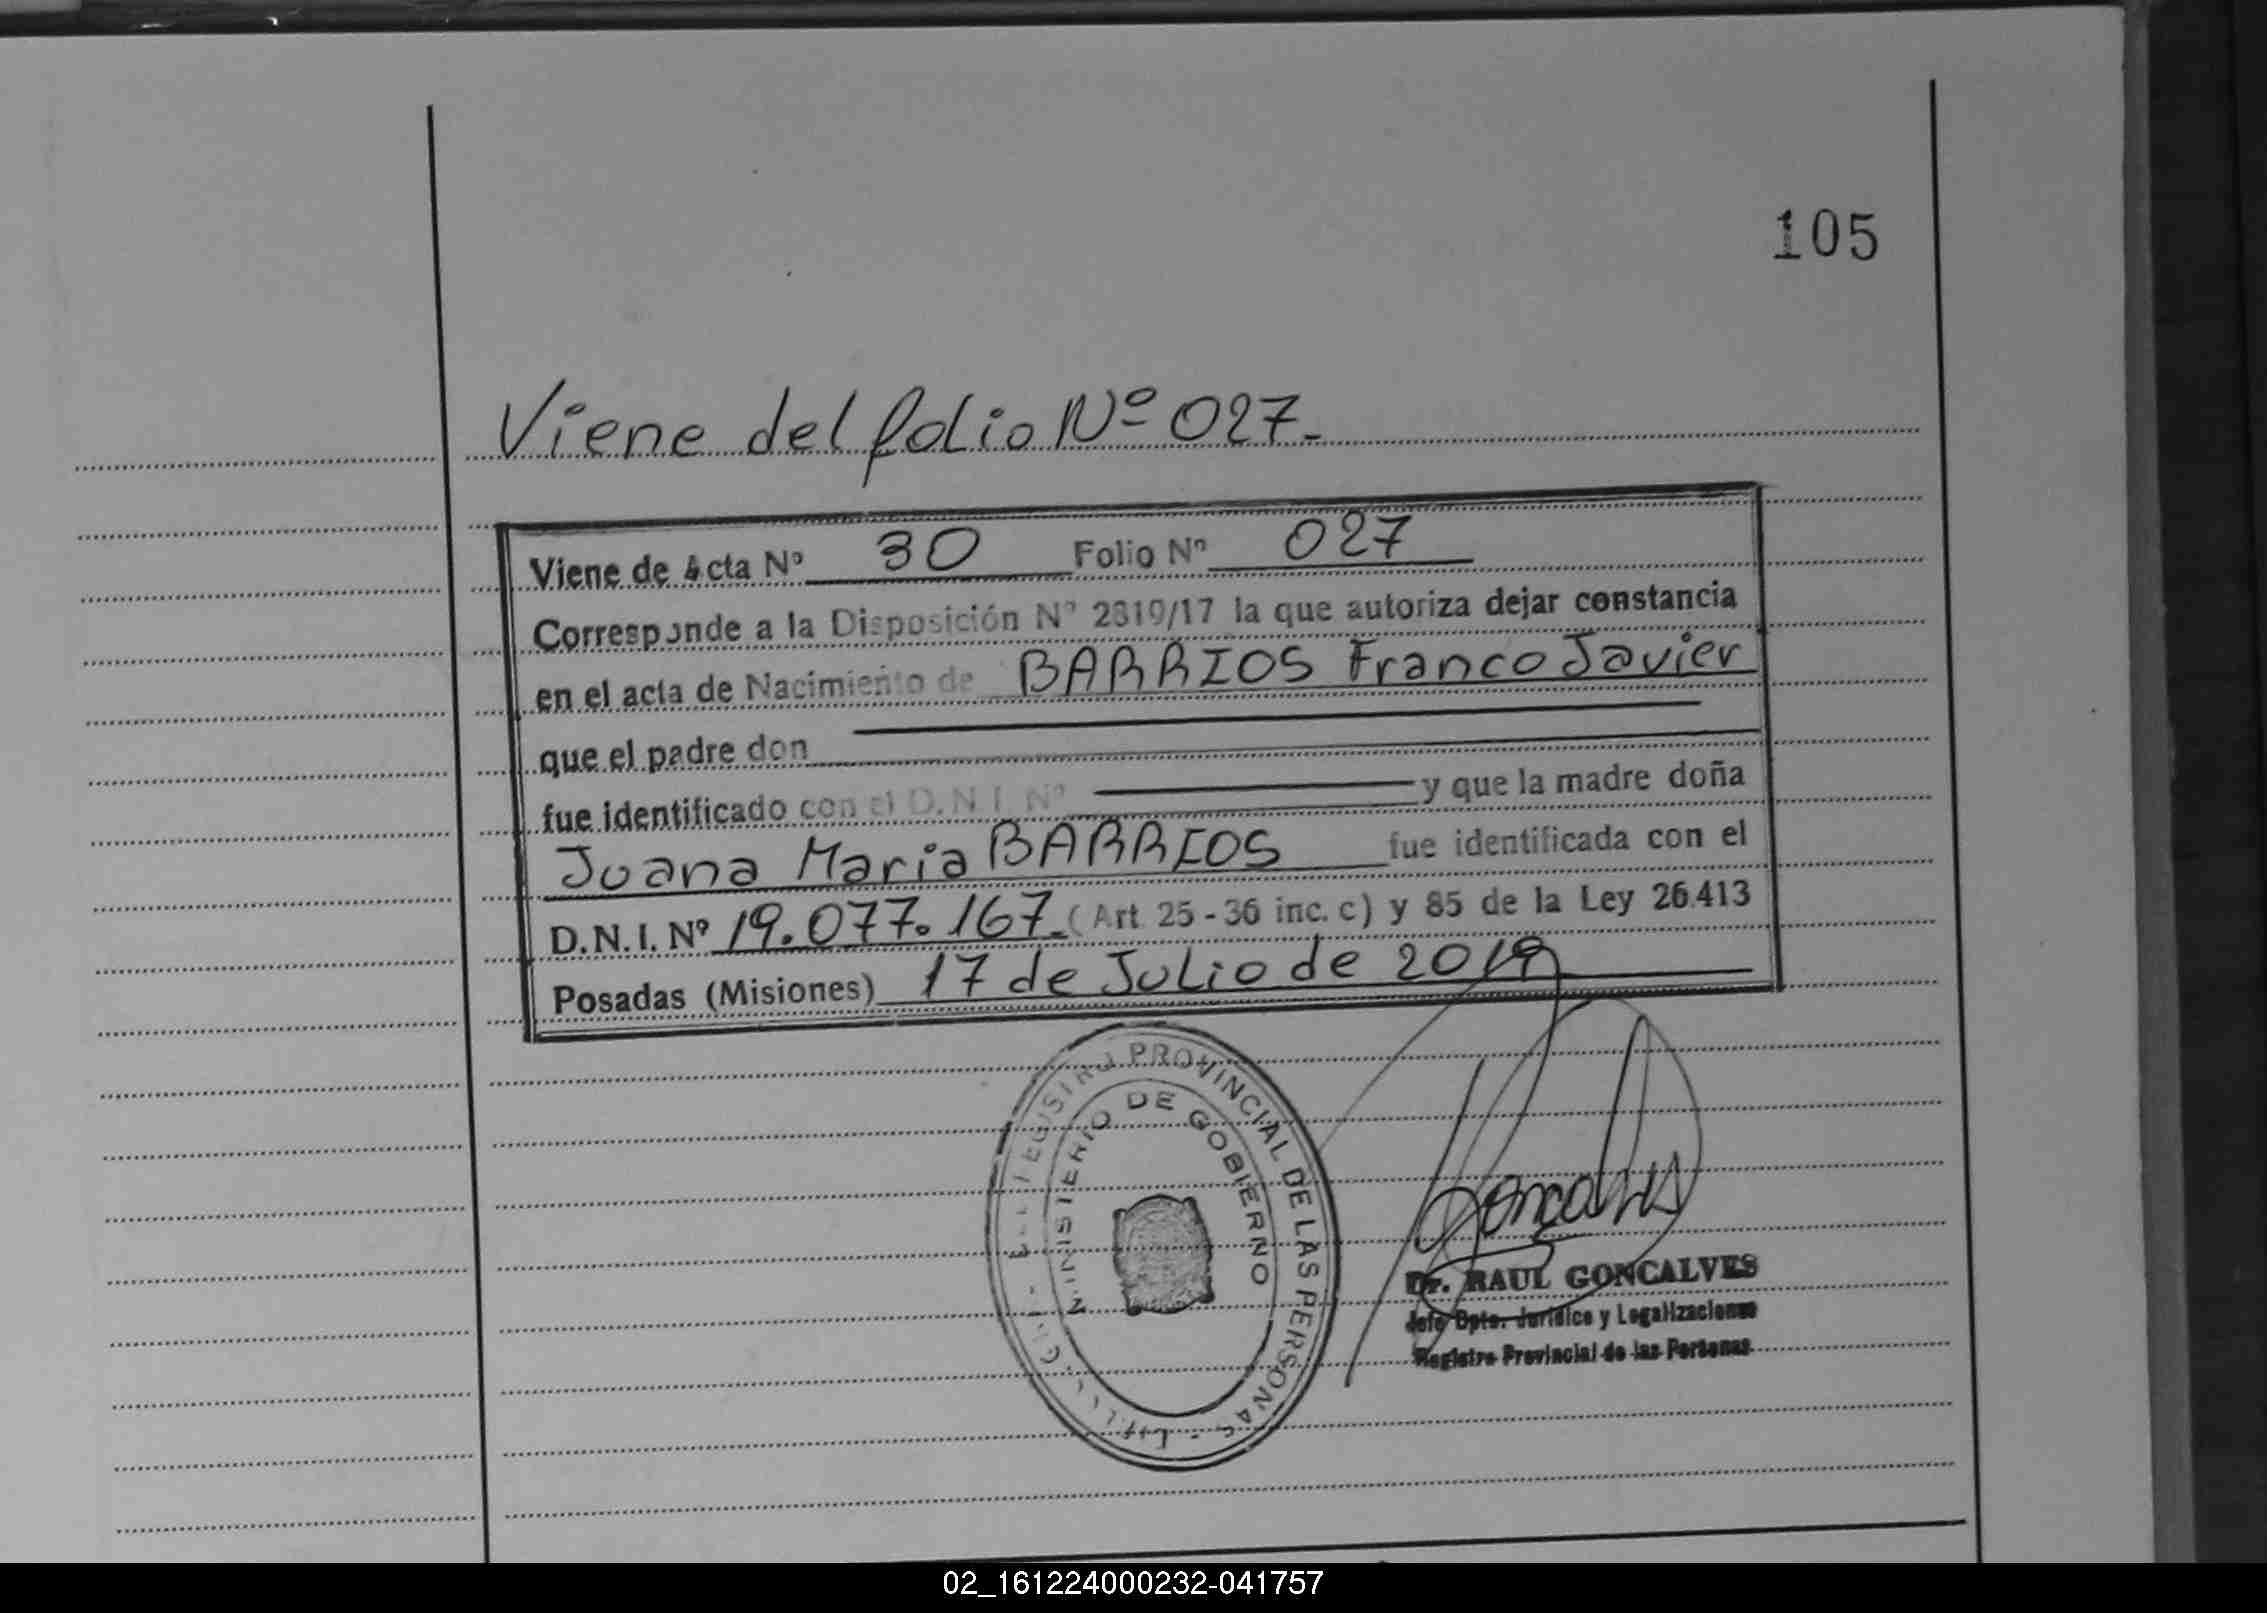 105
Viene del folio Nº 027.-
Viene de Acta Nº 30 Folio Nº 027
Corresponde a la Disposición Nº 2819/17 la que autoriza dejar constancia
en el acta de Nacimiento de BARRIOS Franco Javier
que el padre don
fue identificado con el D.N.I. Nº y que la madre doña
Juana Maria BARRIOS fue identificada con el
D.N.I. Nº 19.077.167.- (Art 25 - 36 inc. c) y 85 de la Ley 26.413
Posadas (Misiones) 17 de Julio de 2019
REGISTRO PROVINCIAL DE LAS PERSONAS
MINISTERIO DE GOBIERNO
Goncalves
Dr. RAUL GONCALVES
Jefe Dpto. Jurídico y Legalizaciones
Registro Provincial de las Personas
02_161224000232-041757